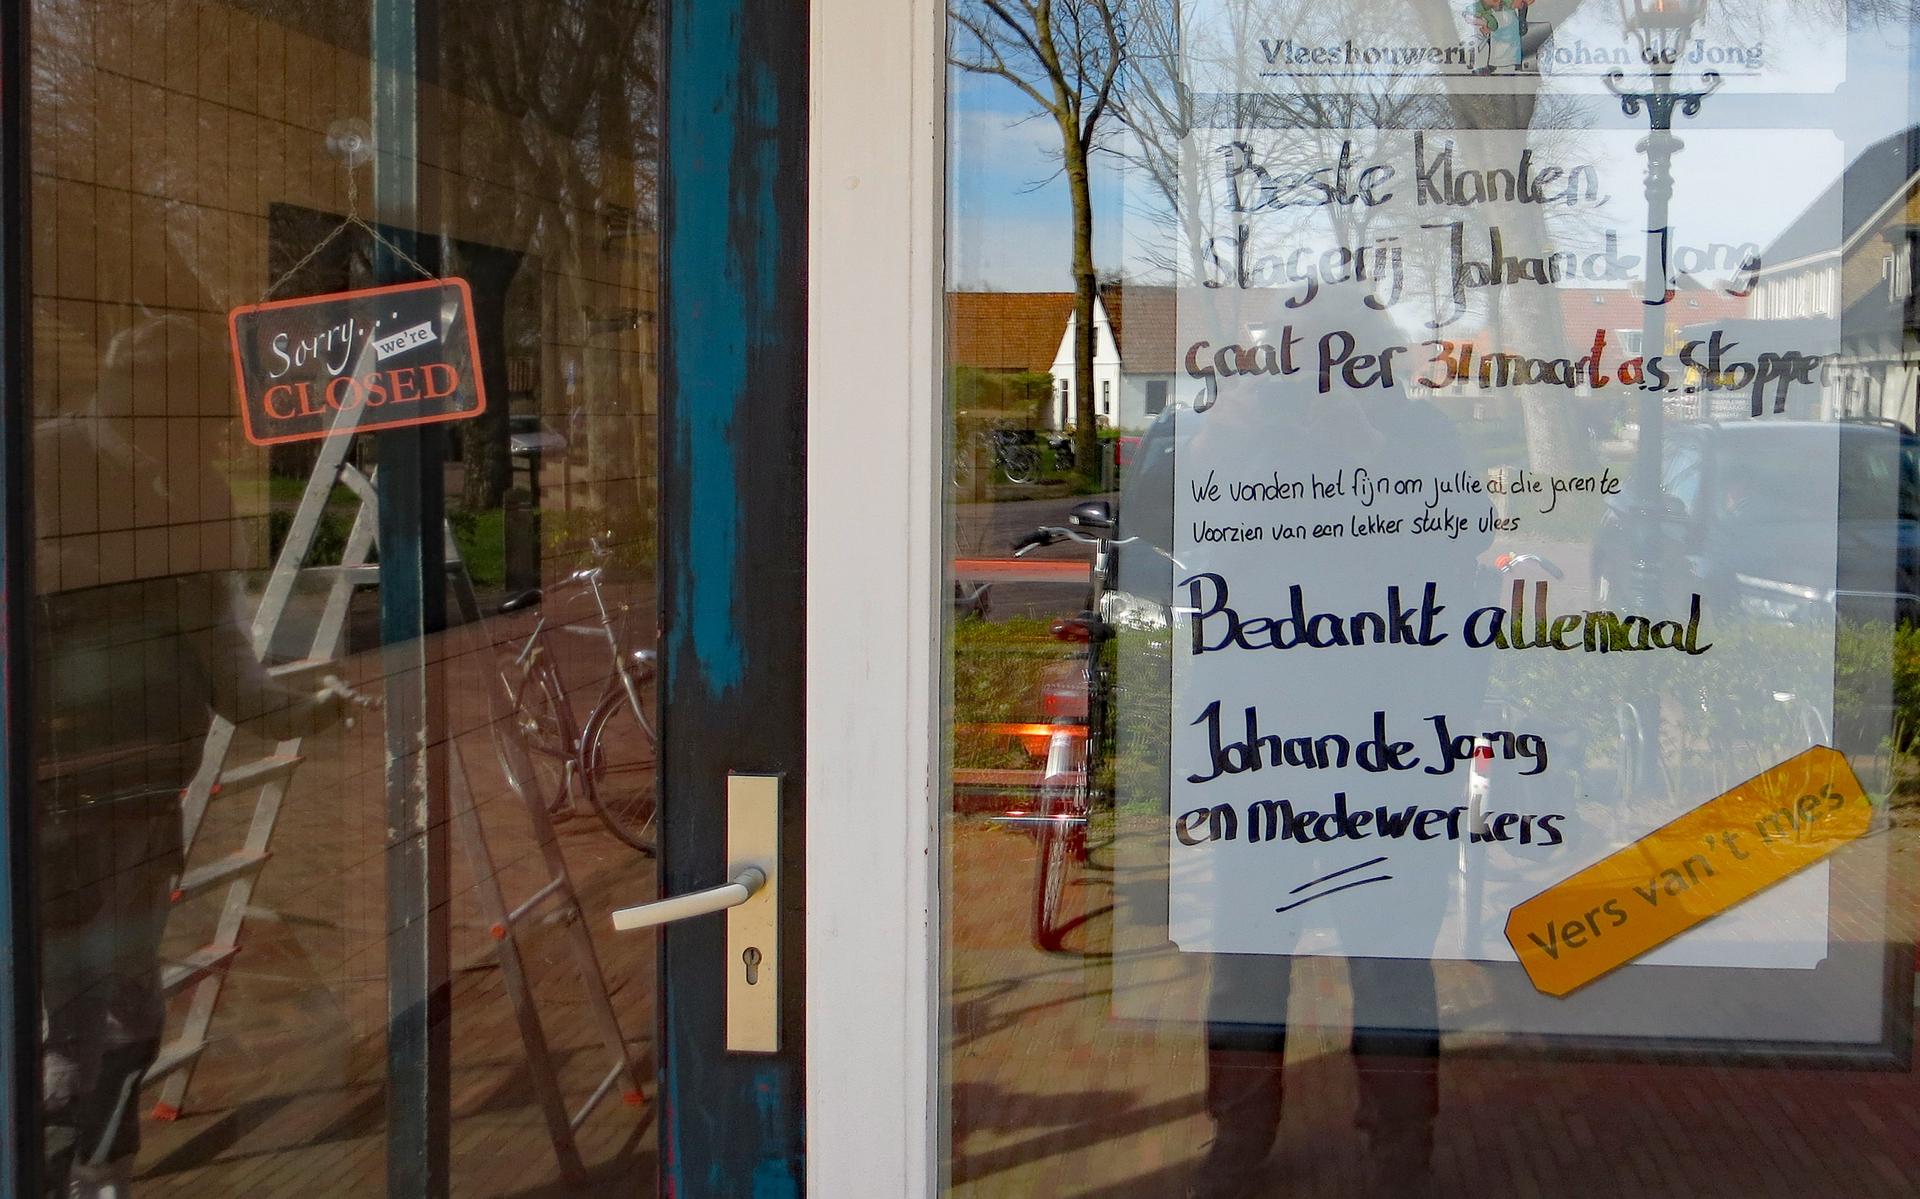 Sorry...
we're
CLOSED
Vleeshouwerij Johan de Jong
Beste klanten,
Slagerij Johan de Jong
gaat Per 31 maart as. Stoppen
We vonden het fijn om jullie al die jaren te
Voorzien van een lekker stukje vlees
Bedankt allemaal
Johan de Jong
en medewerkers
Vers van't mes